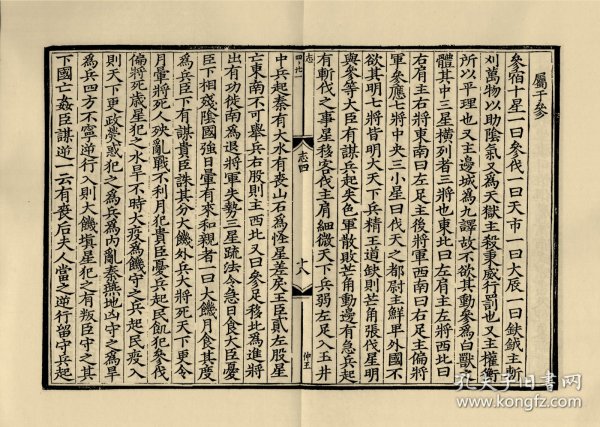 屬于參
參宿十星一曰參伐一曰天市一曰大辰一曰鈇鉞主斬
刈萬物以助陰氣又為天獄主殺秉威行罰也又主權衡
所以平理也又主邊城為九譯故不欲其動參為白獸之
體其中三星橫列者三將也東北曰左肩主左將西北曰
右肩主右將東南曰左足主後將軍西南曰右足主偏將
軍參應七將中央三小星曰伐天之都尉主鮮卑外國不
欲其明七將皆明大天下兵精王道缺則芒角張伐星明
與參等大臣有謀兵起失色軍散敗芒角動邊有急兵起
有斬伐之事星移客伐主肩細微天下兵弱左足入玉井
志
志四
十八
仲玉
中兵起秦有大水有喪山石為怪星差戾王臣貳左股星
亡東南不可舉兵右股則主西北又曰參足移北為進將
出有功徙南為退將軍失勢三星疏法令急日食大臣憂
臣下相殘陰國強日暈有來和親者一曰大饑月食其度
為兵臣下有謀貴臣誅其分大饑外兵大將死天下更令
月暈將死人殃亂戰不利月犯貴臣憂兵起民飢犯參伐
偏將死歲星犯之水旱不時大疫為饑守之兵起民疫入
則天下更政熒惑犯之為兵為內亂秦燕地凶守之為旱
為兵四方不寧逆行入則大饑填星犯之有叛臣守之其
下國亡姦臣謀逆一云有喪后夫人當之逆行留守兵起
孔夫子旧书网
www.kongfz.com